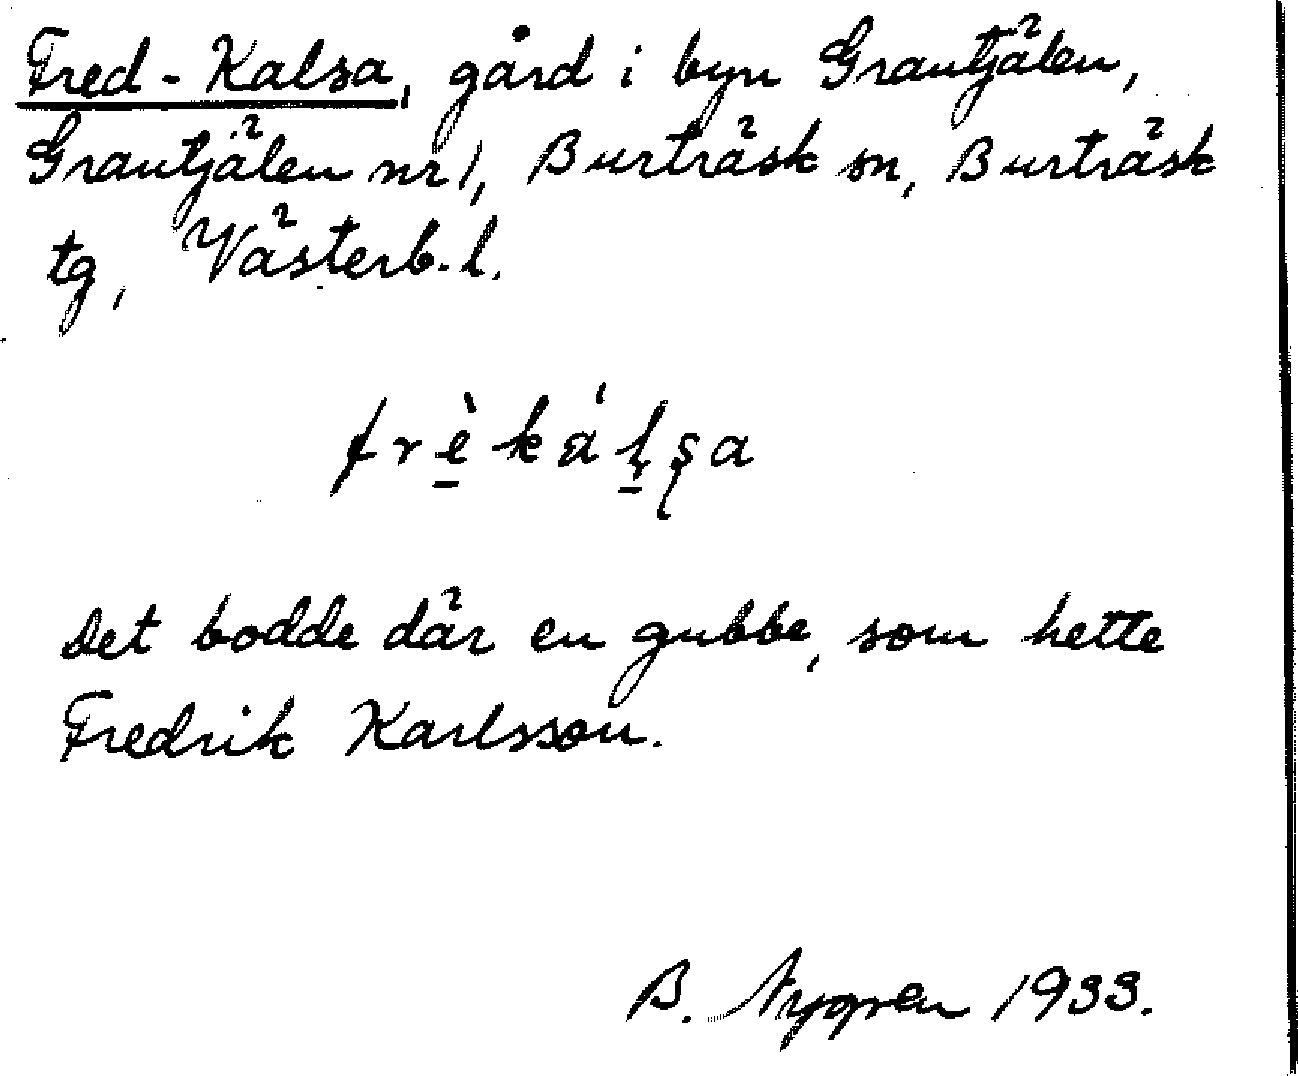 Fred-Kalsa, gård i byn Grantjälen,
Grantjälen nr 1, Burträsk sn, Burträsk
tg, Västerb. l.
frèkálsa
Det bodde där en gubbe, som hette
Fredrik Karlsson.
B. Nygren 1933.